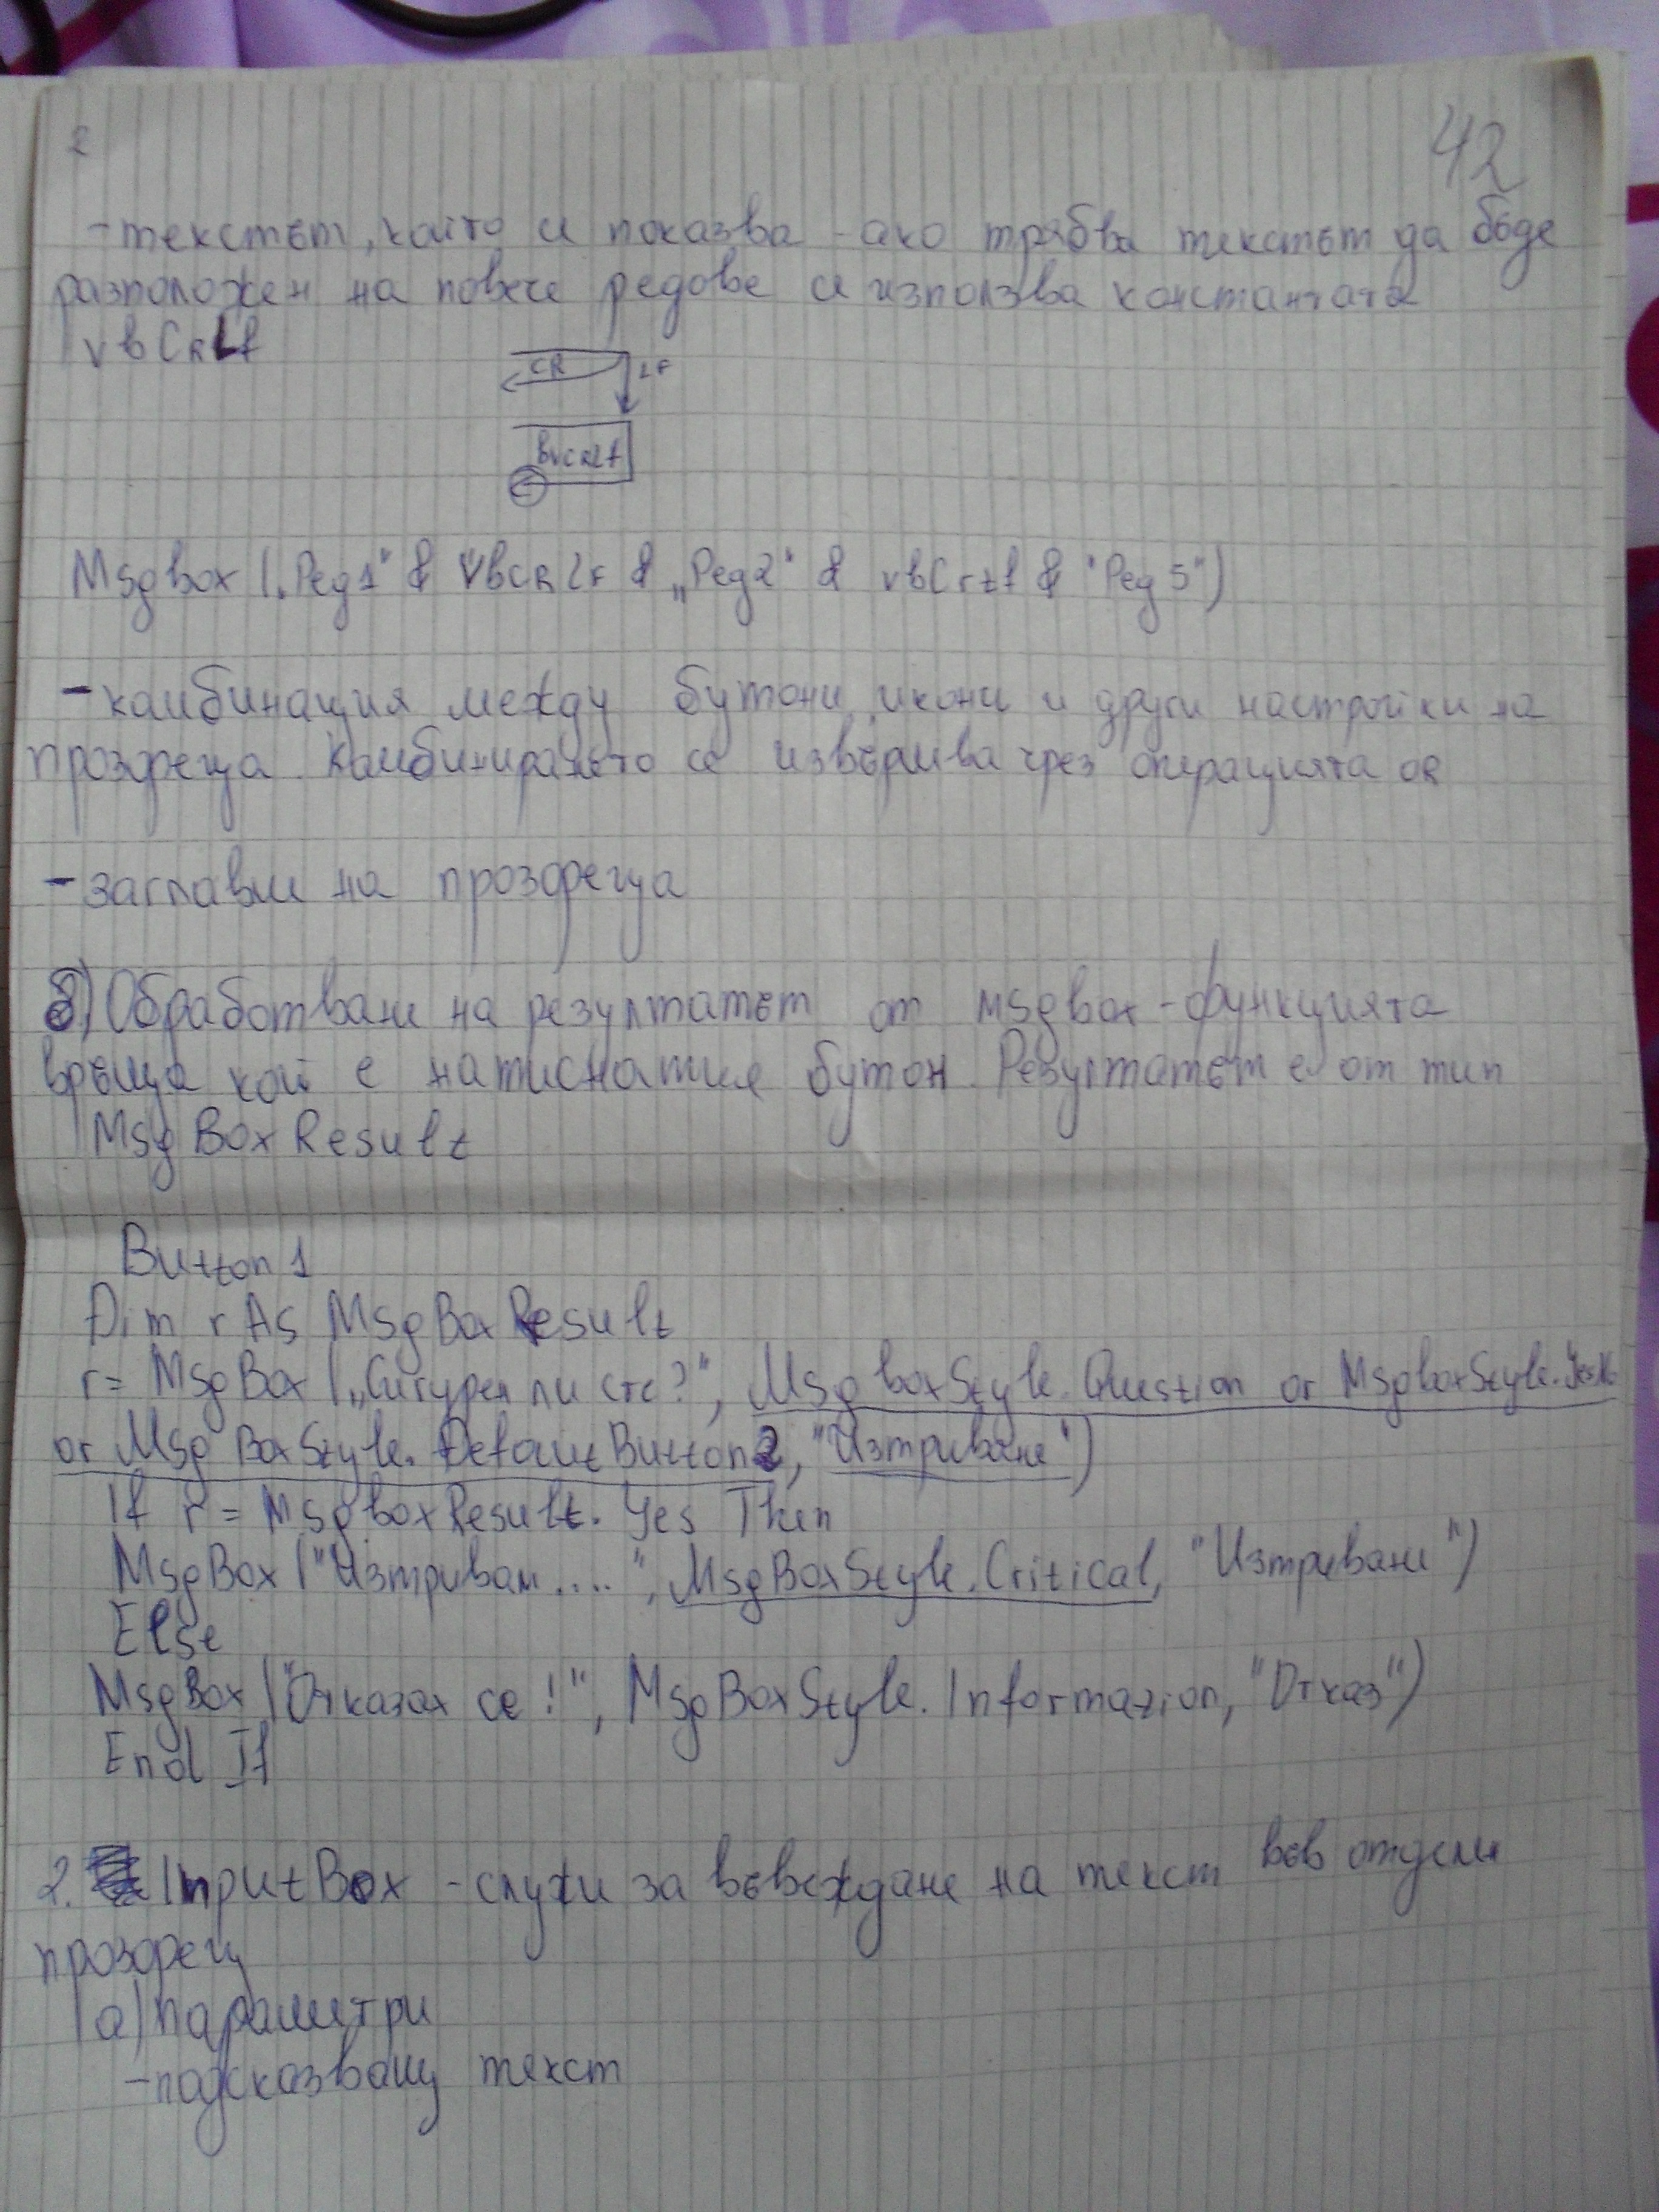 42
- текстът, който се показва - ако трябва текстът да бъде
разположен на повече редове се използва константата
vbCRLf
CR LF
bvCRLf
Msgbox („Ред1" & VbCRLF & „Ред2" & vbCrLf & "Ред 3")
- комбинация между бутони, икони и други настройки на
прозореца. Комбинирането се извършва чрез операцията OR
- заглавие на прозореца
б) Обработване на резултатът от msgbox - функцията
връща кой е натиснатия бутон. Резултатът е от тип
MsgBoxResult
Button1
Dim r As MsgBoxResult
r = MsgBox („Сигурен ли сте?", MsgboxStyle.Question or MsgboxStyle.YesNo
or MsgBoxStyle.DefaultButton2, "Изтриване")
If r = MsgboxResult.Yes Then
MsgBox ("Изтривам....", MsgBoxStyle.Critical, "Изтриване")
Else
MsgBox ("Отказах се!", MsgBoxStyle.Information, "Отказ")
End If
2. InputBox - служи за въвеждане на текст във отделен
прозорец
а) параметри
- подсказващ текст